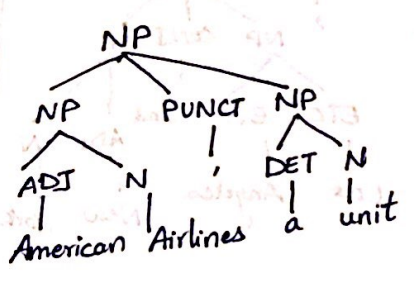 NP
NP PUNCT NP
ADJ N , DET N
American Airlines a unit